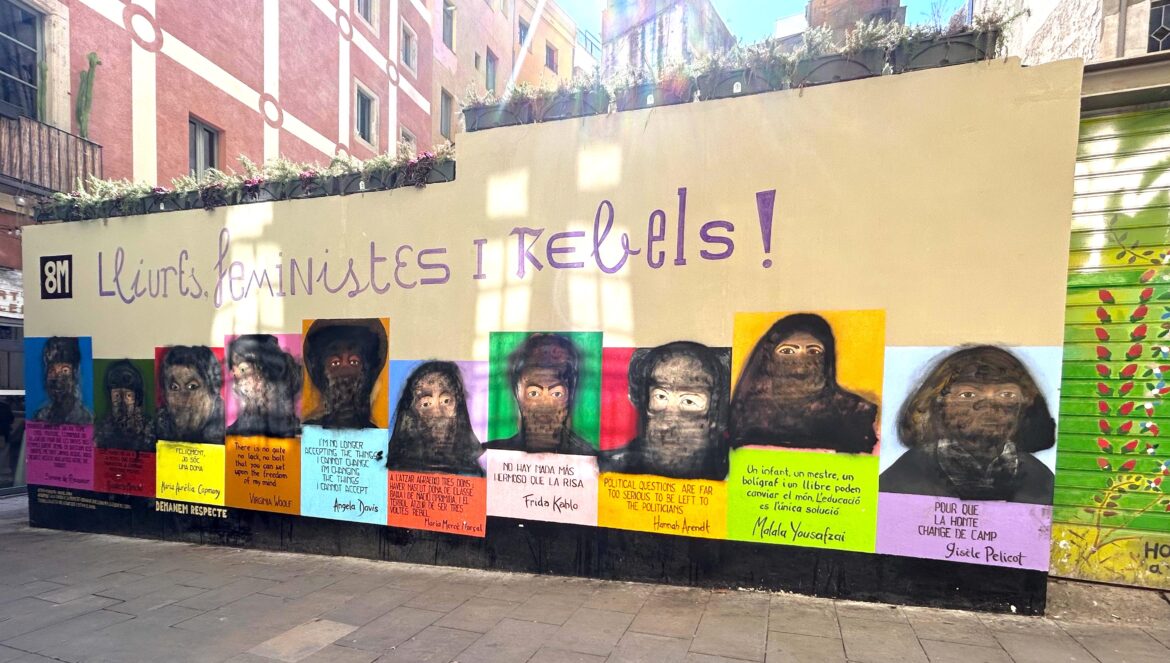 8M
Lliures, feministes i rebels!
Simone de Beauvoir
FELIÇMENT,
JO SÓC
UNA DONA
Maria Aurèlia Capmany
There is no gate
no lock, no bolt
that you can set
upon the freedom of
my mind.
VIRGINIA WOOLF
I'M NO LONGER
ACCEPTING THE THINGS
I CANNOT CHANGE
I'M CHANGING
THE THINGS
I CANNOT ACCEPT
Angela Davis
A L'ATZAR AGRAEIXO TRES DONS:
HAVER NASCUT DONA, DE CLASSE
BAIXA I DE NACIÓ OPRIMIDA. I EL
TÈRBOL ATZUR DE SER TRES
VOLTES REBEL
Maria Mercè Marçal
NO HAY NADA MÁS
HERMOSO QUE LA RISA
Frida Kahlo
POLITICAL QUESTIONS ARE FAR
TOO SERIOUS TO BE LEFT TO
THE POLITICIANS
Hannah Arendt
Un infant, un mestre, un
bolígraf i un llibre poden
canviar el món. L'educació
és l'única solució
Malala Yousafzai
POUR QUE
LA HONTE
CHANGE DE CAMP
Gisèle Pelicot
DEMANEM RESPECTE